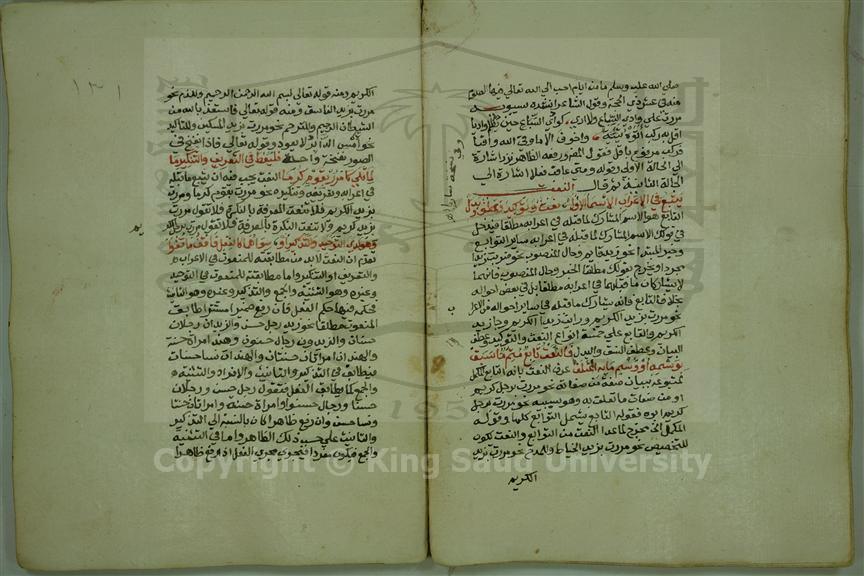 صلى الله عليه وسلم ما من ايام احب الى الله تعالى فيها الصوم
منه في عشر ذي الحجة وقول الشاعر انشده سيبويه
مررت على وادي السباع ولا ارى كوادي السباع حين يظلم واديا
اقل به ركب اتوه تئية واخوف الا ما وقى الله ساريا
فركب مرفوع باقل فقول المصنف ورفعه الظاهر نزر اشارة
الى الحالة الاولى وقوله ومتى عاقب فعلا اشارة الى
الحالة الثانية ثم قال النعت
يتبع في الاعراب الاسماء الاول نعت وتوكيد وعطف وبدل
التابع هو الاسم المشارك لما قبله في اعرابه مطلقا فيدخل
في قولك الاسم المشارك لما قبله في اعرابه ساير التوابع
وخبر المبتدا نحو زيد قايم وحال المنصوب نحو ضربت زيدا
مجردا ويخرج بقولك مطلقا الخبر وحال المنصوب فانهما
لا يشاركان ما قبلهما في اعرابه مطلقا بل في بعض احواله
بخلاف التابع فانه يشارك ما قبله في ساير احواله من الاعراب
نحو مررت بزيد الكريم ورايت زيدا الكريم وجا زيد
الكريم والتابع على خمسة انواع النعت والتوكيد وعطف
البيان وعطف النسق والبدل فالنعت تابع متم ما سبق
بوسمه او وسم ما به اعتلق عرف النعت بانه التابع المكمل
متبوعه ببيان صفة من صفاته نحو مررت برجل كريم
او من صفات ما تعلق به وهو سببيه نحو مررت برجل
كريم ابوه فقوله التابع يشمل التوابع كلها وقوله
المكمل الخ مخرج لما عدا النعت من التوابع والنعت يكون
للتخصيص نحو مررت بزيد الخياط وللمدح نحو مررت بزيد
الكريم
١٣١
الكريم ومنه قوله تعالى بسم الله الرحمن الرحيم وللذم نحو
مررت بزيد الفاسق ومنه قوله تعالى فاستعذ بالله من
الشيطان الرجيم وللترحم نحو مررت بزيد المسكين وللتاكيد
نحو امس الدابر لا يعود وقوله تعالى فاذا نفخ في
الصور نفخة واحدة فليعط في التعريف والتنكير ما
لما تلا كامرر بقوم كرما النعت يجب فيه ان يتبع ما قبله
في اعرابه وتعريفه وتنكيره نحو مررت بقوم كرما ومررت
بزيد الكريم فلا تنعت المعرفة بالنكرة فلا تقول مررت
بزيد كريم ولا تنعت النكرة بالمعرفة فلا تقول مررت برجل الكر
يم
وهو لدى التوحيد والتذكير او سواهما كالفعل فاقف ما قفوا
تقدم ان النعت لا بد من مطابقته للمنعوت في الاعراب
والتعريف او التنكير واما مطابقته للمنعوت في التوحيد
وغيره وهو التثنية والجمع والتذكير وغيره وهو التانيث
فحكمه فيها حكم الفعل فان رفع ضميرا مستترا طابق
المنعوت مطلقا نحو زيد رجل حسن والزيدان رجلان
حسنان والزيدون رجال حسنون وهند امراة حسنة
والهندان امراتان حسنتان والهندات نسا حسنات
فيطابق في التذكير والتانيث والافراد والتثنية
والجمع كما يطابق الفعل فتقول رجل حسن ورجلان
حسنا ورجال حسنوا وامراة حسنت وامراتان حسنتا
ونسا حسن وان رفع ظاهرا كان بالنسبة الى التذكير
والتانيث على حسب ذلك الظاهر واما في التثنية
والجمع فيكون مفردا فيجري مجرى الفعل اذا رفع ظاهرا
Copyright © King Saud University